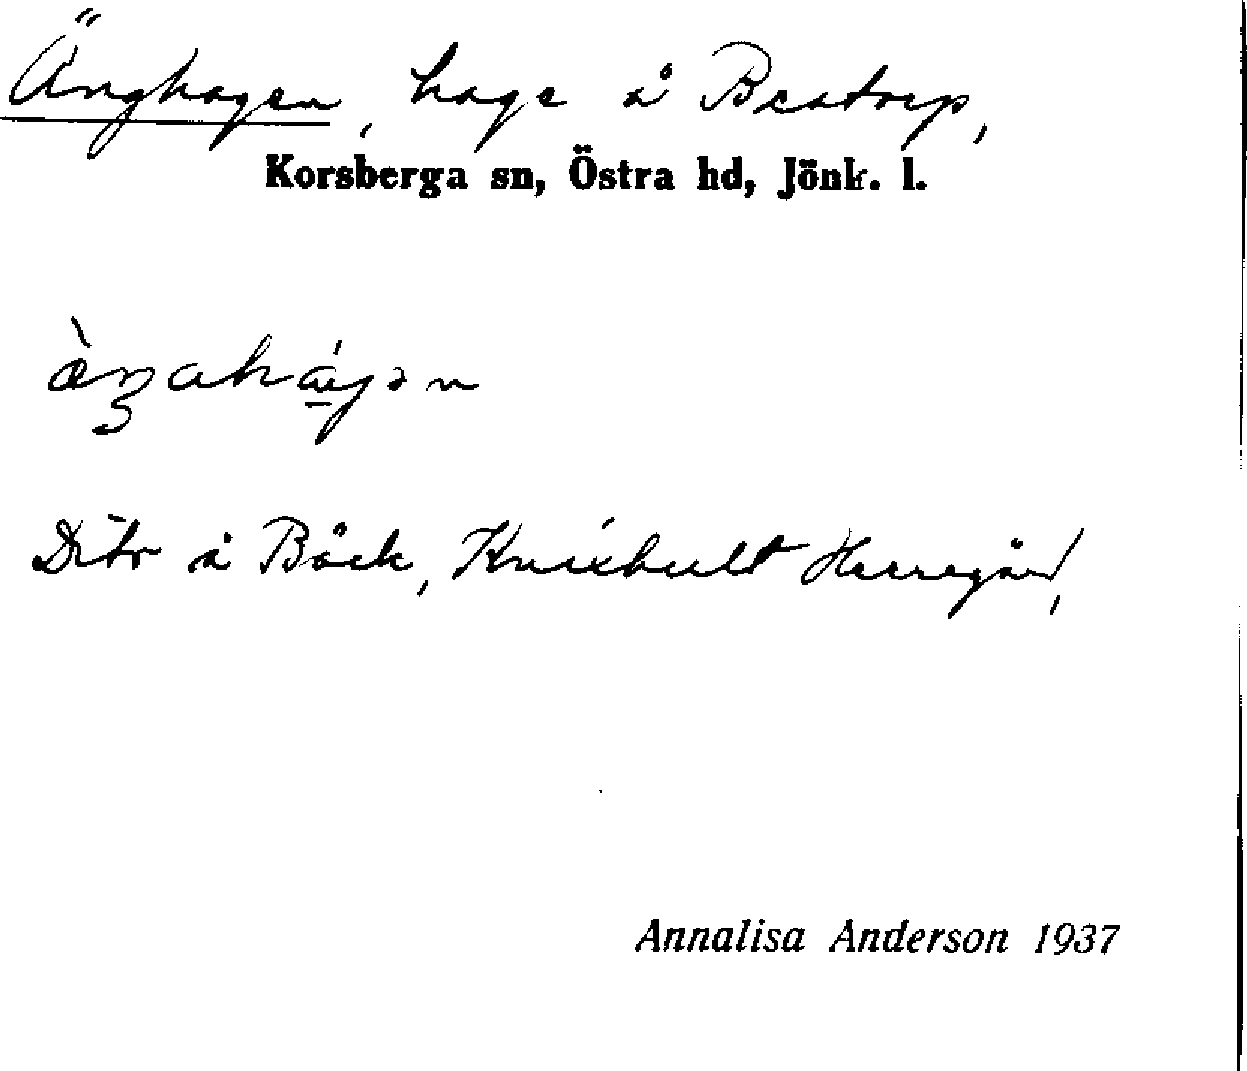 Änghagen, hage å Beatorp,
Korsberga sn, Östra hd, Jönk. l.
æ̀ŋahá̱gən
Dito å Bäck, Knixhult Herregård,
Annalisa Anderson 1937